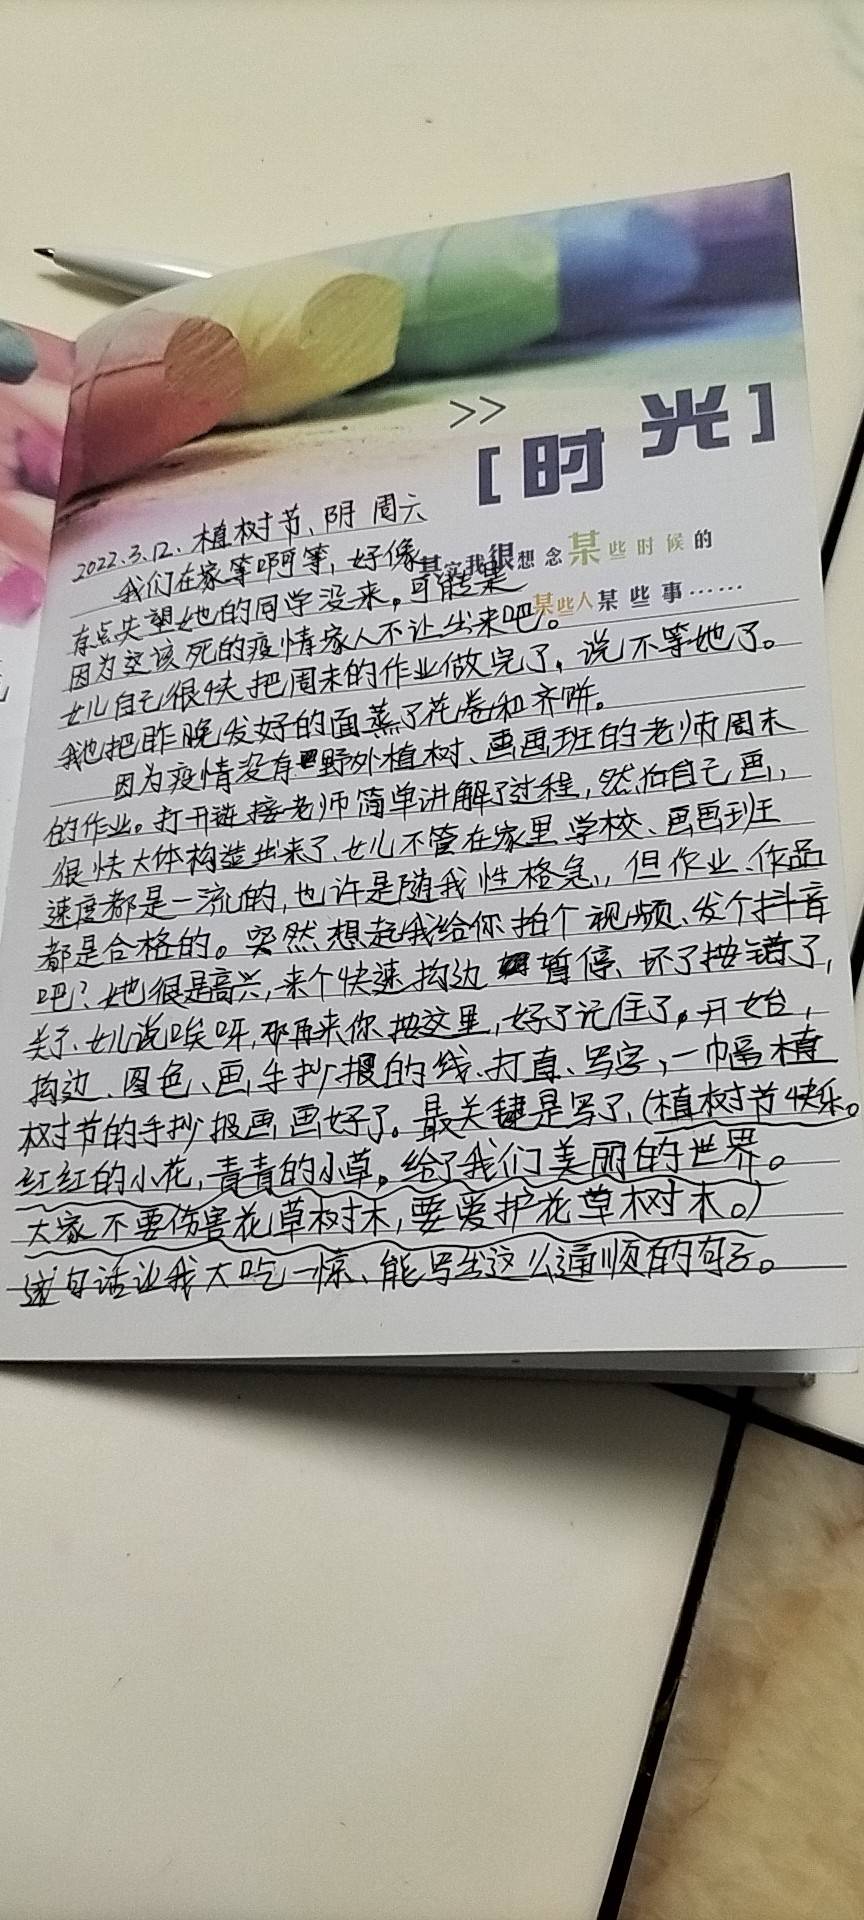 >>
[时光]
其实我很想念某些时候的
某些人某些事……
2022.3.12.植树节、阴 周六
我们在家等啊等，好像
有点失望她的同学没来。可能是
因为这该死的疫情家人不让出来吧。
女儿自己很快把周末的作业做完了，说不等她了。
我也把昨晚发好的面蒸了花卷和齐饼。
因为疫情没有野外植树、画画班的老师周末
的作业。打开链接老师简单讲解了过程，然后自己画，
很快大体构造出来了、女儿不管在家里、学校、画画班
速度都是一流的，也许是随我性格急，但作业、作品
都是合格的。突然想起我给你拍个视频、发个抖音
吧？她很是高兴，来个快速构边 暂停、坏了按错了，
关了、女儿说唉呀，那再来你按这里，好了记住了。开始，
构边、图色、画手抄报的线、打直、写字，一幅植
树节的手抄报画画好了。最关键是写了，(植树节快乐。
红红的小花，青青的小草。给了我们美丽的世界。
大家不要伤害花草树木，要爱护花草树木。)
这句话让我大吃一惊、能写出这么通顺的句子。